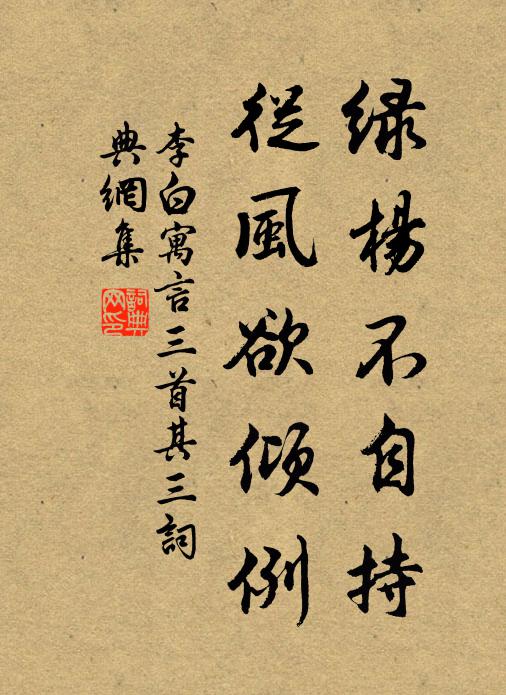 緑楊不自持
從風欲傾例
李白寓言三首其三詞
典網集
詞典
网印